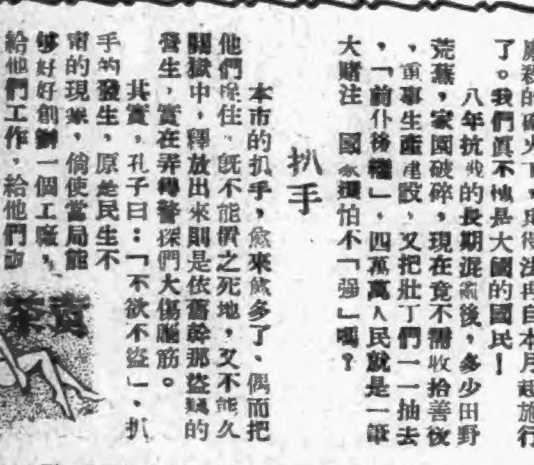 的礮火下,兵役法再自本月起施行
了。我們眞不愧是大國的國民!
八年抗戰的長期混亂後,多少田野
荒蕪,家園破碎,現在竟不需收拾善後
,重事生產建設,又把壯丁們一一抽去
,「前仆後繼」,四萬萬人民就是一筆
大賭注 國家還怕不「强」嗎?
扒手
本市的扒手,愈來愈多了、偶而把
他們捉住,旣不能價之死地,又不能久
關獄中,釋放出來則是依舊幹那盜竊的
發生,實在弄得警探們大傷腦筋。
其實,孔子曰:「不欲不盜」,扒
手的發生,原是民生不
甯的現象,倘使當局能
够好好創辦一個工廠,
給他們工作,給他們
賣茶